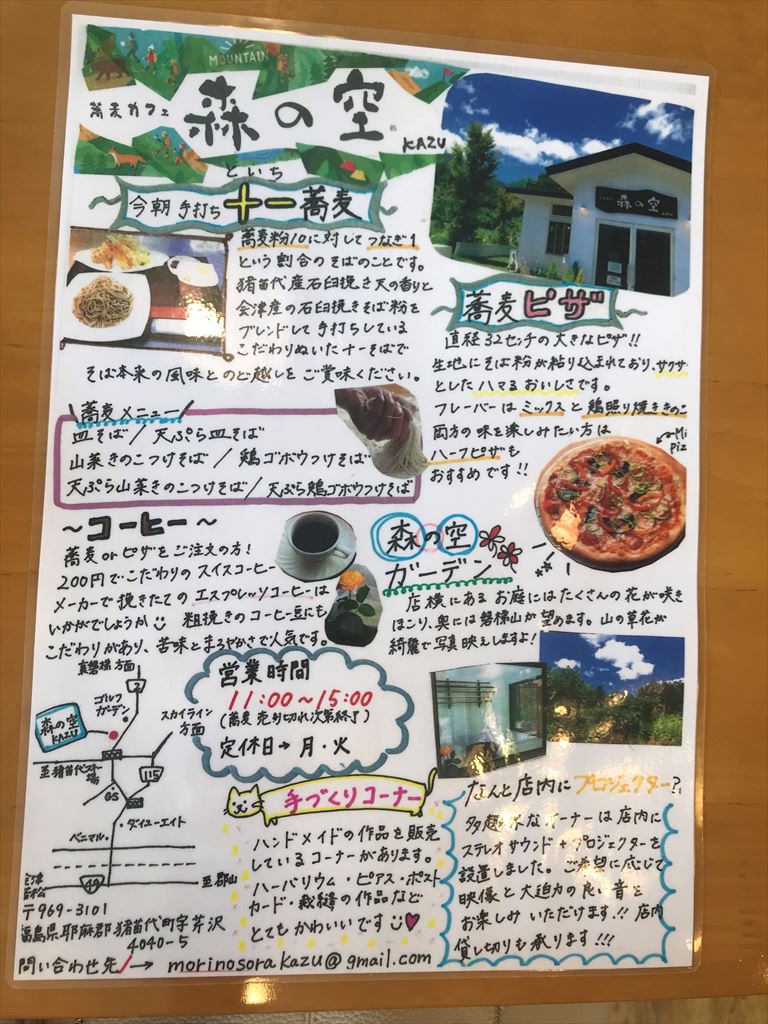 MOUNTAIN
蕎麦カフェ
森の空
KAZU
といち
今朝手打ち十一蕎麦
蕎麦粉10に対してつなぎ1
という割合のそばのことです。
猪苗代産石臼挽き天の香りと
会津産の石臼挽きそば粉を
ブレンドして手打ちしている
こだわりぬいた十一そばで
そば本来の風味とのど越しをご賞味ください。
森の空
蕎麦ピザ
直径32センチの大きなピザ!!
生地にそば粉が粘り込まれており、サクサク
としたハマるおいしさです。
フレーバーはミックスと鶏照り焼ききのこ
両方の味を楽しみたい方は
ハーフピザも
おすすめです!!
Mi
Piz
蕎麦メニュー
皿そば/天ぷら皿そば
山菜きのこつけそば/鶏ゴボウつけそば
天ぷら山菜きのこつけそば/天ぷら鶏ゴボウつけそば
~コーヒー~
蕎麦orピザをご注文の方!
200円でこだわりのスイスコーヒー
メーカーで挽きたてのエスプレッソコーヒーは
いかがでしょうか 粗挽きのコーヒー豆にも
こだわりがあり、苦味とまろやかさで人気です。
森の空
ガーデン
店横にあるお庭にはたくさんの花が咲き
ほこり、奥には磐梯山が望めます。山の草花が
綺麗で写真映えしますよ!
営業時間
11:00~15:00
(蕎麦売り切れ次第終了)
定休日→月・火
裏磐梯方面
2
ゴルフ
ガーデン
スカイライン
方面
森の空
KAZU
至猪苗代スキー
場
115
GS
ベニマル
ダイユーエイト
会津
若松
49
至郡山
手づくりコーナー
ハンドメイドの作品を販売
しているコーナーがあります。
ハーバリウム・ピアス・ポスト
カード・裁縫の作品など
とてもかわいいです
なんと店内にプロジェクター?
多趣味なオーナーは店内に
ステレオサウンド+プロジェクターを
設置しました。ご希望に応じて
映像と大迫力の良い音を
お楽しみいただけます.!! 店内
貸し切りも承ります!!!
〒969-3101
福島県耶麻郡猪苗代町字芹沢
4040-5
問い合わせ先/→ morinosorakazu@gmail.com